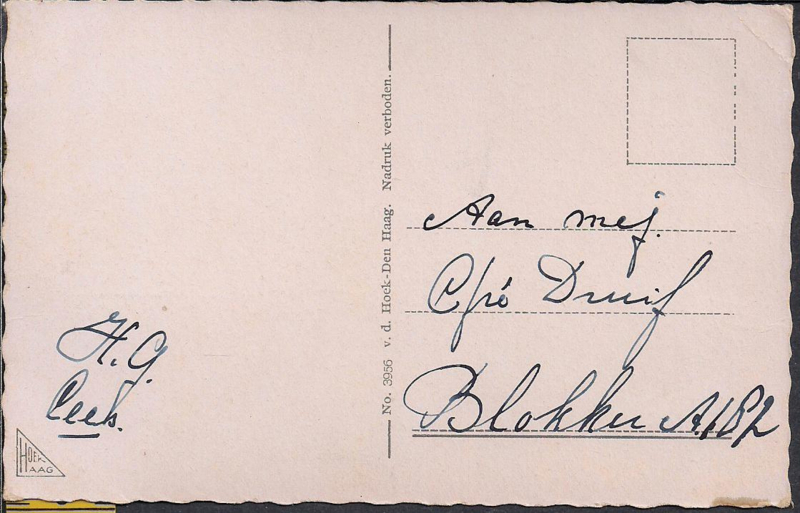 H.G.
Cees.
HOEK
HAAG
No. 3956 v. d. Hoek-Den Haag. Nadruk verboden.
Aan mej.
Druif
Blokker A.182